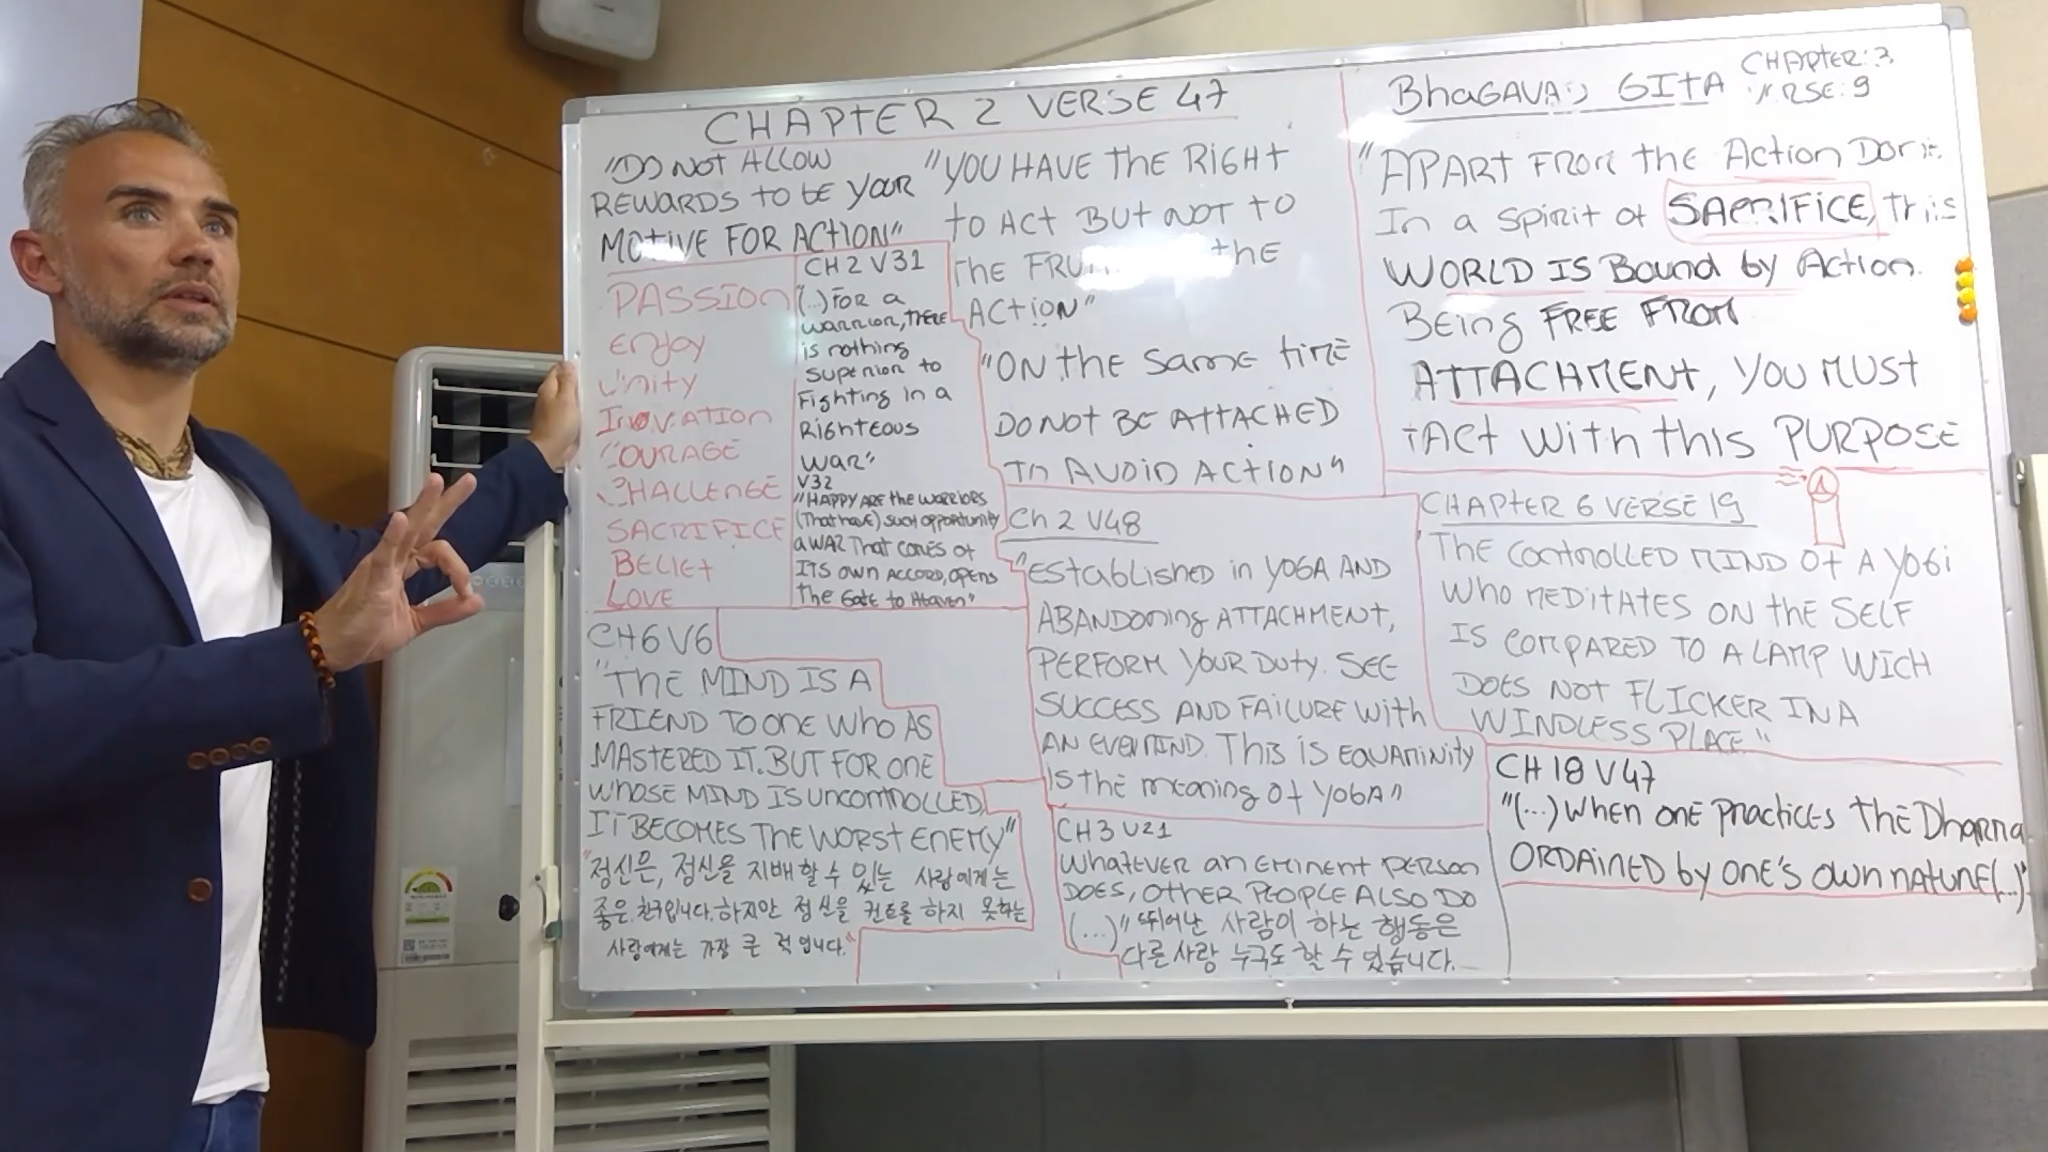 CHAPTER 2 VERSE 47
"DO NOT ALLOW
REWARDS TO BE YOUR
MOTIVE FOR ACTION"
"YOU HAVE the RIGHT
to ACT BUT NOT TO
the
ACTION"
"ON the same time
DO NOT BE ATTACHED
TO AVOID ACTION"
PASSION
ENJOY
UNITY
COURAGE
CHALLENGE
SACRIFICE
BELIEF
LOVE
CH 2 V31
"(...) FOR a
warrior, there
is nothing
superior to
Fighting in a
Righteous
WAR"
V32
"HAPPY ARE the WARRIORS
(That have) such opportunity
a WAR That comes of
ITS OWN ACCORD, opens
the Gate to Heaven"
CH6 V6
"THE MIND IS A
FRIEND TO ONE WHO AS
MASTERED IT. BUT FOR ONE
WHOSE MIND IS uncontrolled,
IT BECOMES THE WORST ENEMY"
"정신은, 정신을 지배할 수 있는 사람에게는
좋은 친구입니다. 하지만 정신을 컨트롤 하지 못하는
사람에게는 가장 큰 적입니다."
Ch 2 V48
"Established in YOGA AND
ABANDoning ATTACHMENT,
PERFORM YOUR DUTY. SEE
SUCCESS AND FAILURE WITH
AN EVENMIND. This is EQUANINITY
is the meaning of YOGA"
CH 3 V21
WHATEVER an EMINENT PERSON
DOES, OTHER PEOPLE ALSO DO
(...)" "뛰어난 사람이 하는 행동은
다른 사람 누구도 할 수 있습니다.
BhaGAVAD GITA
CHAPTER: 3
VERSE: 9
"APART FROM the Action Done
In a spirit of SACRIFICE, this
WORLD IS Bound by Action.
Being FREE FROM
ATTACHMENT, YOU MUST
Act With this PURPOSE
CHAPTER 6 VERSE 19
"THE CONTROLLED MIND Of A YOGI
WHO MEDITATES ON the SELF
IS COMPARED TO A LAMP WICH
DOES NOT FLICKER IN A
WINDLESS PLACE"
CH 18 V47
"(...) WHEN ONE Practices THE Dharma
ORDAINED by ONE'S OWN NATURE (...)"